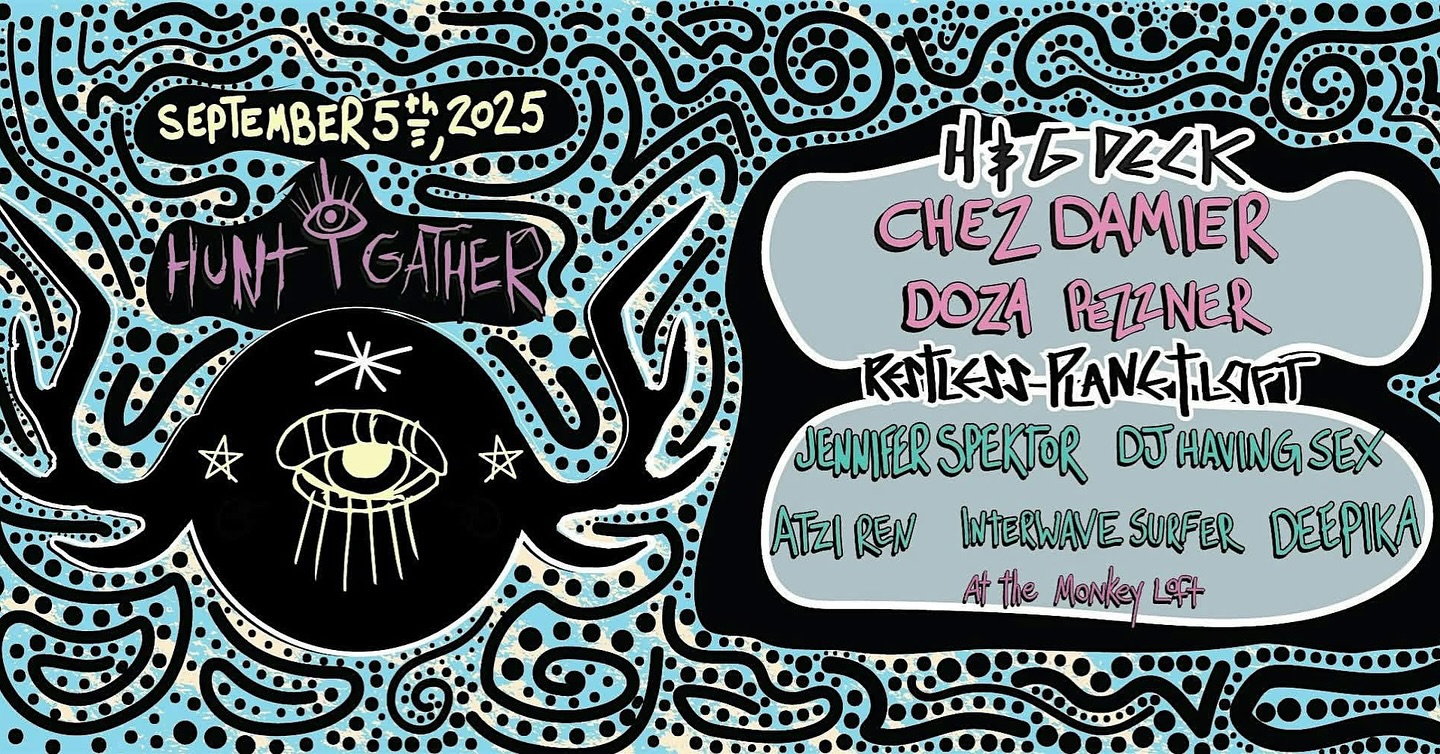 SEPTEMBER 5th, 2025
HUNT GATHER
H & G DECK
CHEZ DAMIER
DOZA PEZZNER
RESTLESS-PLANET.LOFT
JENNIFER SPEKTOR DJ HAVING SEX
ATZI REN INTERWAVE SURFER DEEPIKA
At the Monkey Loft